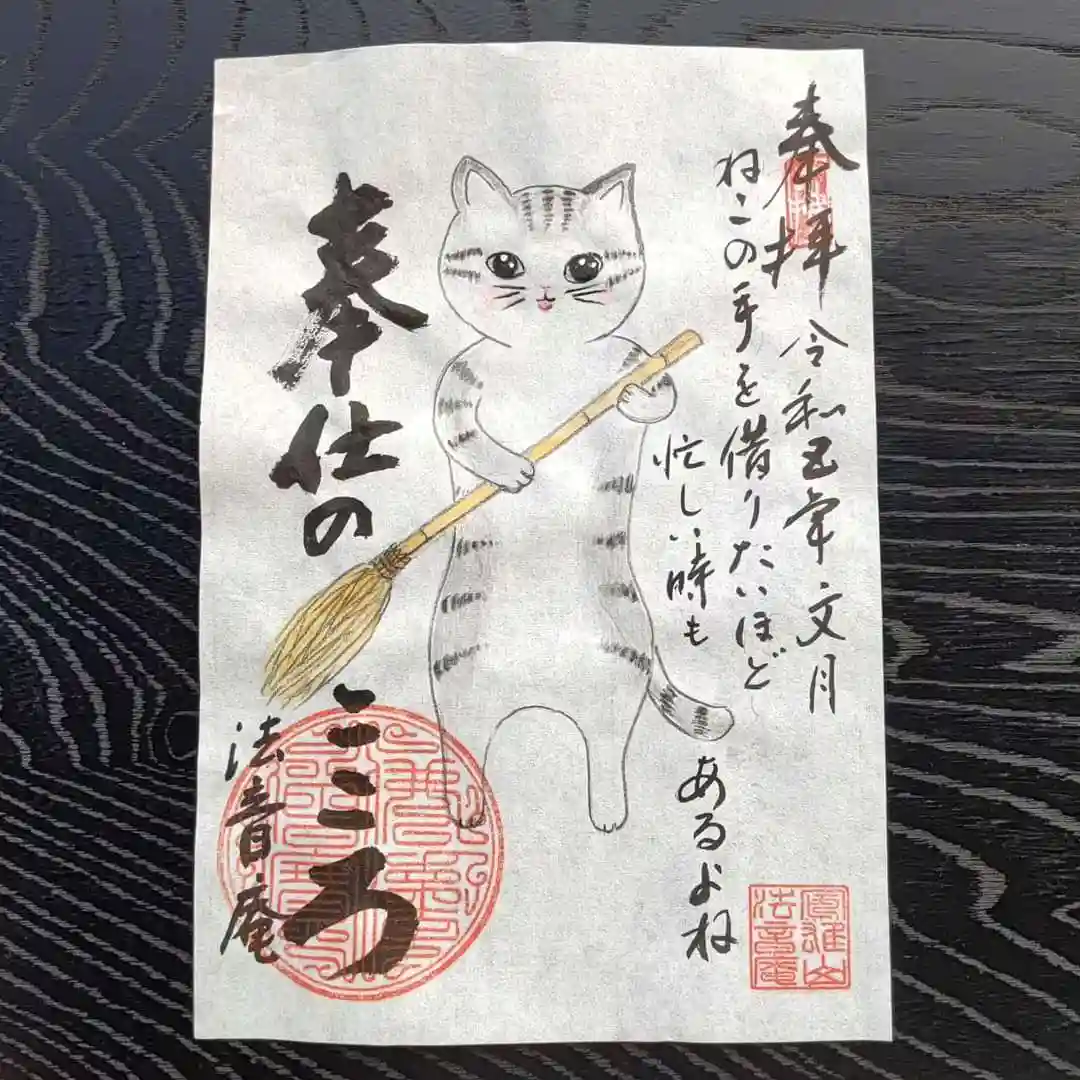 奉拝
令和五年文月
ねこの手を借りたいほど
忙しい時も
あるよね
奉仕の
こころ
法音庵
法音庵